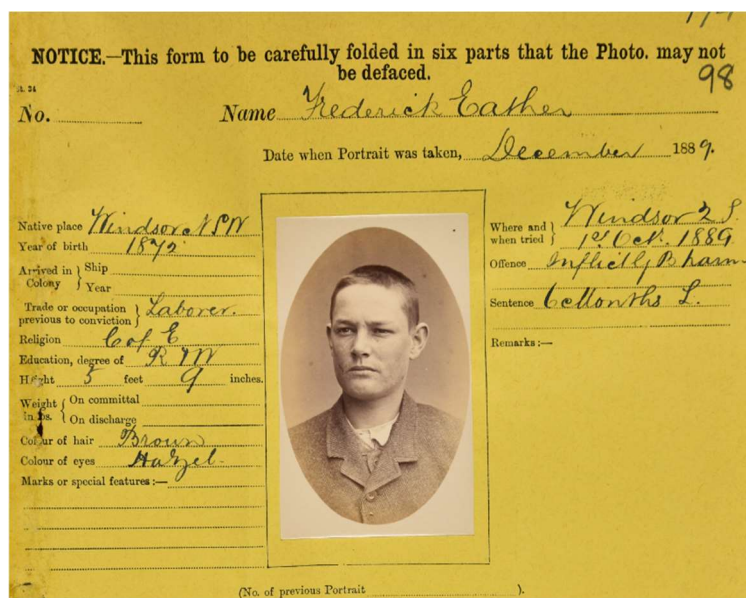 NOTICE.—This form to be carefully folded in six parts that the Photo. may not
be defaced.
98
No.
Name Frederick Eather
Date when Portrait was taken, December 1889.
Native place Windsor NSW
Year of birth 1872
Arrived in Colony } Ship
Year
Trade or occupation previous to conviction } Laborer.
Religion C of E
Education, degree of R W
Height 5 feet 9 inches.
Weight in lbs. { On committal
On discharge
Colour of hair Brown
Colour of eyes Hazel
Marks or special features:—
Where and when tried } Windsor 2 S.
1st Oct. 1889
Offence Inflict G B harm
Sentence 6 Months L.
Remarks:—
(No. of previous Portrait ).